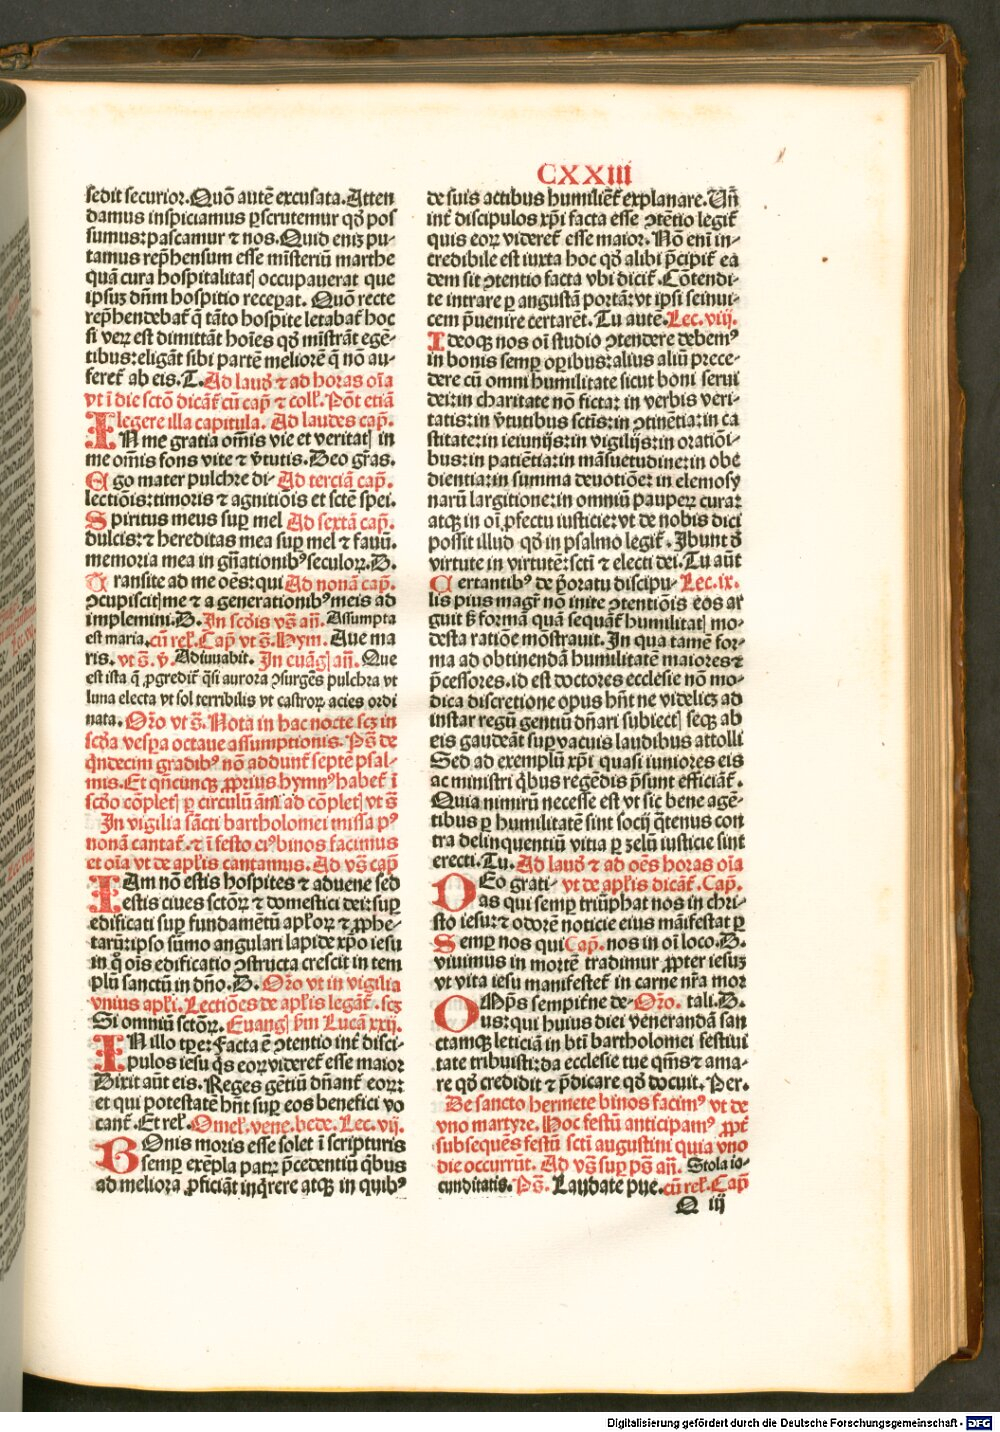 CXXIII
sedit securior. Quō autē excusata. Atten
damus inspiciamus pscrutemur qđ pos
sumus: pascamur ⁊ nos. Quid eniꝫ pu-
tamus rep̄hensum esse mīsteriū marthe
quā cura hospitalitatꝭ occupauerat que
ipsuꝫ dn̄m hospitio recepat. Quō recte
rep̄hendebat̄ q̄ tāto hospite letabat̄ hoc
si veꝝ est dimittāt hoīes qđ mīstrāt egē-
tibus: eligāt sibi partē meliorē q̄ nō au-
feret̄ ab eis. T. Ad laud̓ ⁊ ad horas oīa
vt ī die sctō dicāt̄ cū cap̄ ⁊ coll̓. Pn̄t etiā
legere illa capitula. Ad laudes cap̄.
IN me gratia om̄is vie et veritatꝭ in
me om̄is fons vite ⁊ v̓tutis. Deo gr̄as.
Ego mater pulchre di- Ad terciā cap̄.
lectiōis: timoris ⁊ agnitiōis et sctē spei.
Spiritus meus sup̱ mel Ad sextā cap̄.
dulcis: ⁊ hereditas mea sup̱ mel ⁊ fauū.
memoria mea in gn̄ationibꝰ seculoꝝ. D.
Transite ad me oēs: qui Ad nonā cap̄.
ꝯcupiscitꝭ me ⁊ a generationibꝰ meis ad
implemini. D. In scd̓is vs̄ an̄. Assumpta
est maria. cū rel̓. Cap̄ vt s̄. Hym. Aue ma
ris. vt s̄. v̄. Adiuuabit. In euāgꝭ an̄. Que
est ista q̄ ꝓgredit̄ q̄si aurora ꝯsurgēs pulchra vt
luna electa vt sol terribilis vt castroꝝ acies ordi
nata. Or̄o vt s̄. Nota in hac nocte scꝫ in
scd̓a vesp̱a octaue assumptionis. Ps̄ de
q̄ndecim gradibꝰ nō addunt̄ septē psal-
mis. Et qn̄cunqꝫ ꝓprius hymnꝰ habet̄ ī
scd̓o cōpletꝭ p̱ circulū an̄i ad cōpletꝭ vt s̄
In vigilia sācti bartholomei missa pꝰ
nonā cantat̄. ⁊ ī festo eiꝰ binos facimus
et oīa vt de apl̓is cantamus. Ad vs̄ cap̄
IAm nō estis hospites ⁊ aduene sed
estis ciues sctōꝝ ⁊ domestici dei: sup̱
edificati sup̱ fundamētū apl̓oꝝ ⁊ ꝓphe-
tarū: ipso sūmo angulari lapide xp̄o iesu
in q̄ oīs edificatio ꝯstructa crescit in tem
plū sanctū in dn̄o. D. Or̄o vt in vigilia
vnius apl̓i. Lectiōes de apl̓is legāt̄. scꝫ
Si omniū sctōꝝ. Euangꝭ s̄m Lucā xxij.
IN illo tp̱e: Facta ē ꝯtentio int̓ disci-
pulos iesu q̄s eoꝝ videret̄ esse maior
Dixit aūt eis. Reges gētiū dn̄ant̄ eoꝝ:
et qui p̱otestatē hn̄t sup̱ eos benefici vo
cant̄. Et rel̓. Omel̓. vene. bede. Lec. vij.
BOnis moris esse solet ī scripturis
semp̱ exēpla patꝝ p̄cedentiū q̄bus
ad meliora ꝓficiāt inq̄rere atqꝫ in quibꝰ
de suis actibus humiliēt̄ explanare. Un̄
int̓ discipulos xp̄i facta esse ꝯtētio legit̄
quis eoꝝ videret̄ esse maior. Nō enī in-
credibile est iuxta hoc qđ alibi p̄cipit̄ ea
dem sit ꝯtentio facta vbi dicit̄. Cōtendi-
te intrare p̱ angustā portā: vt ipsi seinui-
cem p̄uenire certarēt. Tu autē. Lec. viij.
Ideoqꝫ nos oī studio ꝯtendere debemꝰ
in bonis semp̱ oꝑibus: alius aliū prece-
dere cū omni humilitate sicut boni serui
dei: in charitate nō ficta: in verbis veri-
tatis: in v̓tutibus sctīs: in ꝯtinētia: in ca
stitate: in ieiunijs: in vigilijs: in oratiōi-
bus: in patiētia: in māsuetudine: in obe
dientia: in summa deuotiōe: in elemosy
narū largitione: in omniū pauperꝝ cura:
atqꝫ in oī ꝓfectu iusticie: vt de nobis dici
possit illud qđ in psalmo legit̄. Ibunt d̓
virtute in virtutē: sctī ⁊ electi dei. Tu aūt
Certantibꝰ de p̄oratu discipu- Lec. ix.
lis pius magr̄ nō inite ꝯtentiōis eos ar
guit s̓ formā quā sequant̄ humilitatꝭ mo-
desta ratiōe mōstrauit. In qua tamē for-
ma ad obtinendā humilitatē maiores ⁊
p̄cessores. id est doctores ecclesie nō mo-
dica discretione opus hn̄t ne videlicꝫ ad
instar regū gentiū dn̄ari subiectꝭ seqꝫ ab
eis gaudeāt sup̱uacuis laudibus attolli
Sed ad exemplū xp̄i quasi iuniores eis
ac ministri q̄bus regēdis p̄sunt efficiāt̄.
Quia nimirū necesse est vt sic bene agē-
tibus p̱ humilitatē sint socij q̄tenus con
tra delinquentiū vitia p̱ zelū iusticie sint
erecti. Tu. Ad laud̓ ⁊ ad oēs horas oīa
DEo grati- vt de apl̓is dicāt̄. Cap̄.
as qui semp̱ triūphat nos in chri-
sto iesu: ⁊ odorē noticie eius māifestat p̱
Semp̱ nos qui Cap̄. nos in oī loco. D.
viuimus in mortē tradimur ꝓpter iesuꝫ
vt vita iesu manifestet̄ in carne nr̄a mor
OMp̄s sempit̓ne de- Or̄o. tali. D.
us: qui huius diei venerandā san
ctamqꝫ leticiā in bt̄i bartholomei festiui
tate tribuisti: da ecclesie tue q̄m̄s ⁊ ama-
re qđ credidit ⁊ p̄dicare qđ docuit. Per.
De sancto hermete binos facimꝰ vt de
vno martyre. Hoc festū anticipamꝰ ꝓpt̓
subsequēs festū sctī augustini quia vno
die occurrūt. Ad vs̄ sup̱ ps̄ an̄. Stola io-
cunditatis. Ps̄. Laudate pue. cū rel̓. Cap̄
Q iij
Digitalisierung gefördert durch die Deutsche Forschungsgemeinschaft - DFG